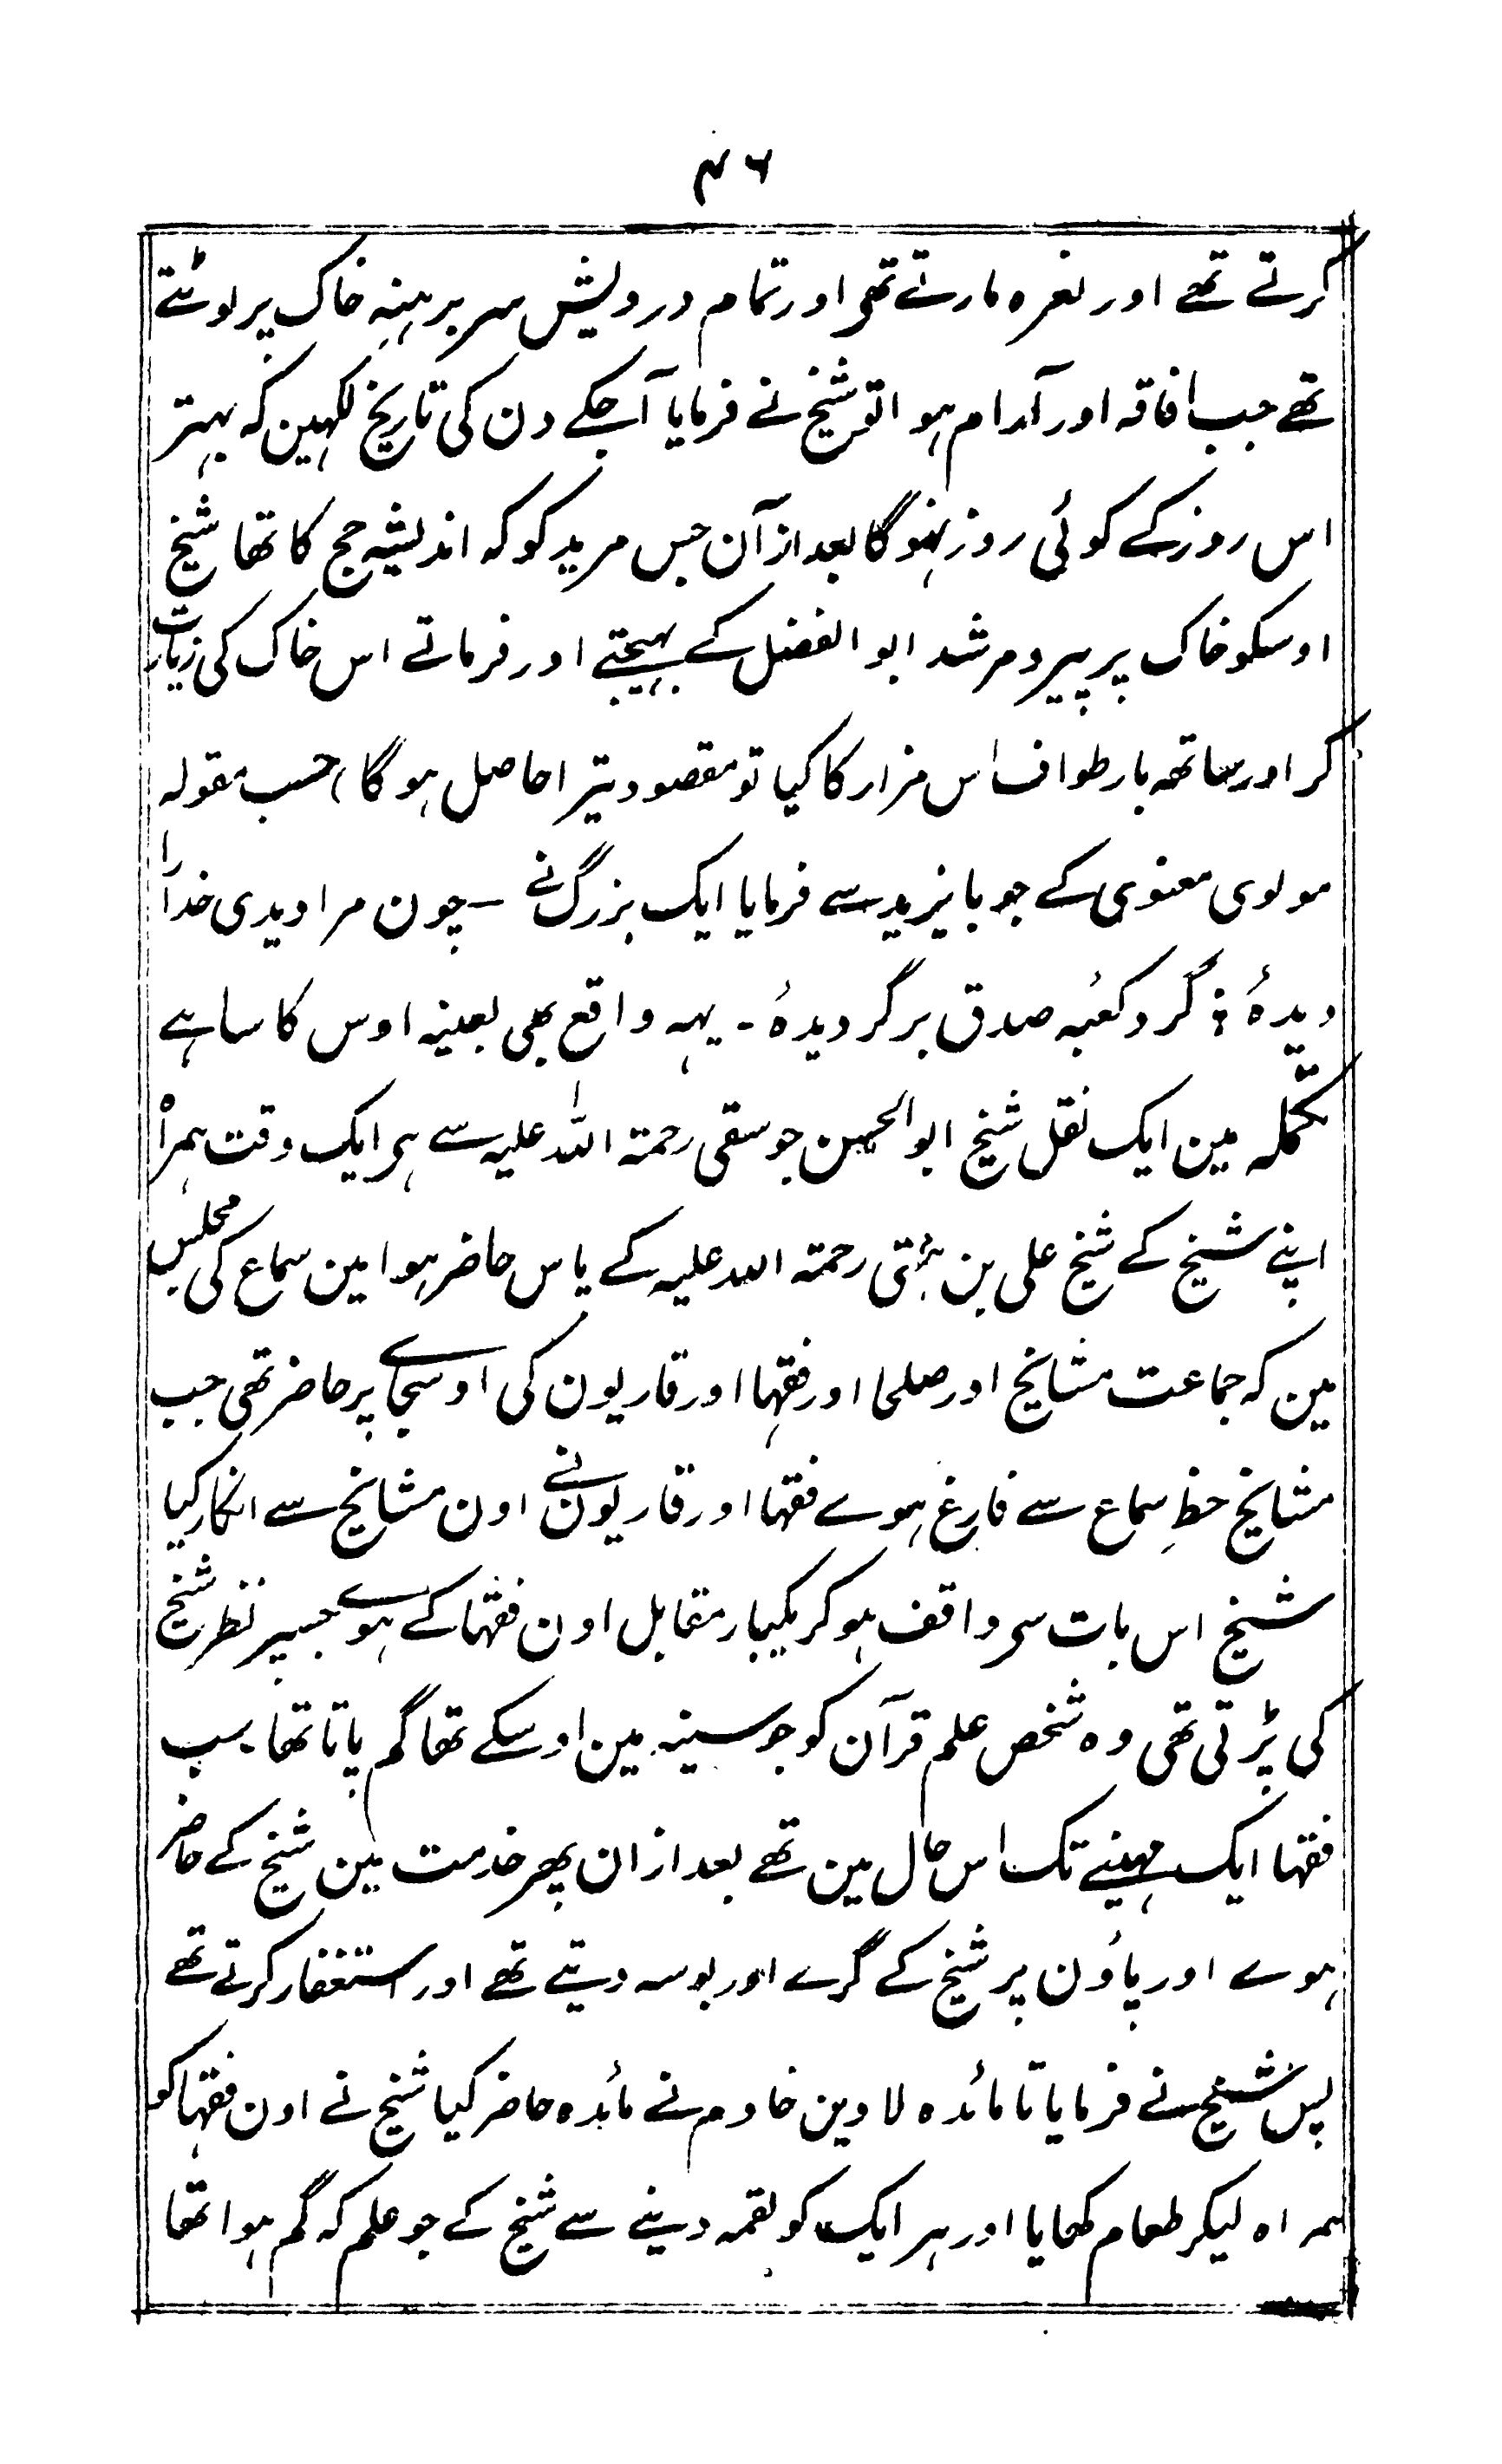 ۴۶
کرتے تھے اور نعرہ مارتے تھی اور تمام درویش سر برہنہ خاک پر لوٹتے
تھے جب افاقہ اور آرام ہوا تو شیخ نے فرمایا آجکے دن کی تاریخ لکہین کہ بہتر
اس روز کے کوئی روز نہوگا بعد ازآن جس مرید کو کہ اندیشہ حج کا تھا شیخ
اوسکو خاک پر پیر و مرشد ابو الفضل کے بہیجتے اور فرماتے اس خاک کی زیارت
کر اور ساتھہ بار طواف اس مزار کا کیا تو مقصود تیرا حاصل ہوگا، حسب مقولہ
مولوی معنوی کے جو بایزید سے فرمایا ایک بزرگ نے ـ چون مرا دیدی خدا را
دیدۂ ؛ گرد کعبۂ صدق برگردیدۂ ۔ یہہ واقع بھی بعینہ اوس کا سا ہے
تکملہ مین ایک نقل شیخ ابو الحسن جوسقی رحمۃ اللہ علیہ سے ہی ایک وقت ہمراہ
اپنے شیخ کے شیخ علی بن ہیتی رحمتہ اللہ علیہ کے پاس حاضر ہوا مین سماع کی مجلس
مین کہ جماعت مشایخ اور صلحا اور فقہا اور قاریون کی اوسجا پر حاضر تھی جب
مشایخ حظِ سماع سے فارغ ہوے فقہا اور قاریون نے اون مشایخ سے انکار کیا
شیخ اس بات سی واقف ہوکر یکبار مقابل اون فقہا کے ہوے جسپر نظر شیخ
کی پڑتی تھی وہ شخص علم قرآن کو جو سینہ مین اوسکے تھا گم پاتا تھا سب
فقہا ایک مہینے تک اس حال مین تھے بعد ازان پھر خدمت مین شیخ کے حاضر
ہوے اور پاؤن پر شیخ کے گرے اور بوسہ دیتے تھے اور استغفار کرتے تھے
پس شیخ نے فرمایا تا مائدہ لاوین خادم نے مائدہ حاضر کیا شیخ نے اون فقہا کو
ہمراہ لیکر طعام کھایا اور ہر ایک کو لقمہ دینے سے شیخ کے جو علم کہ گم ہوا تھا